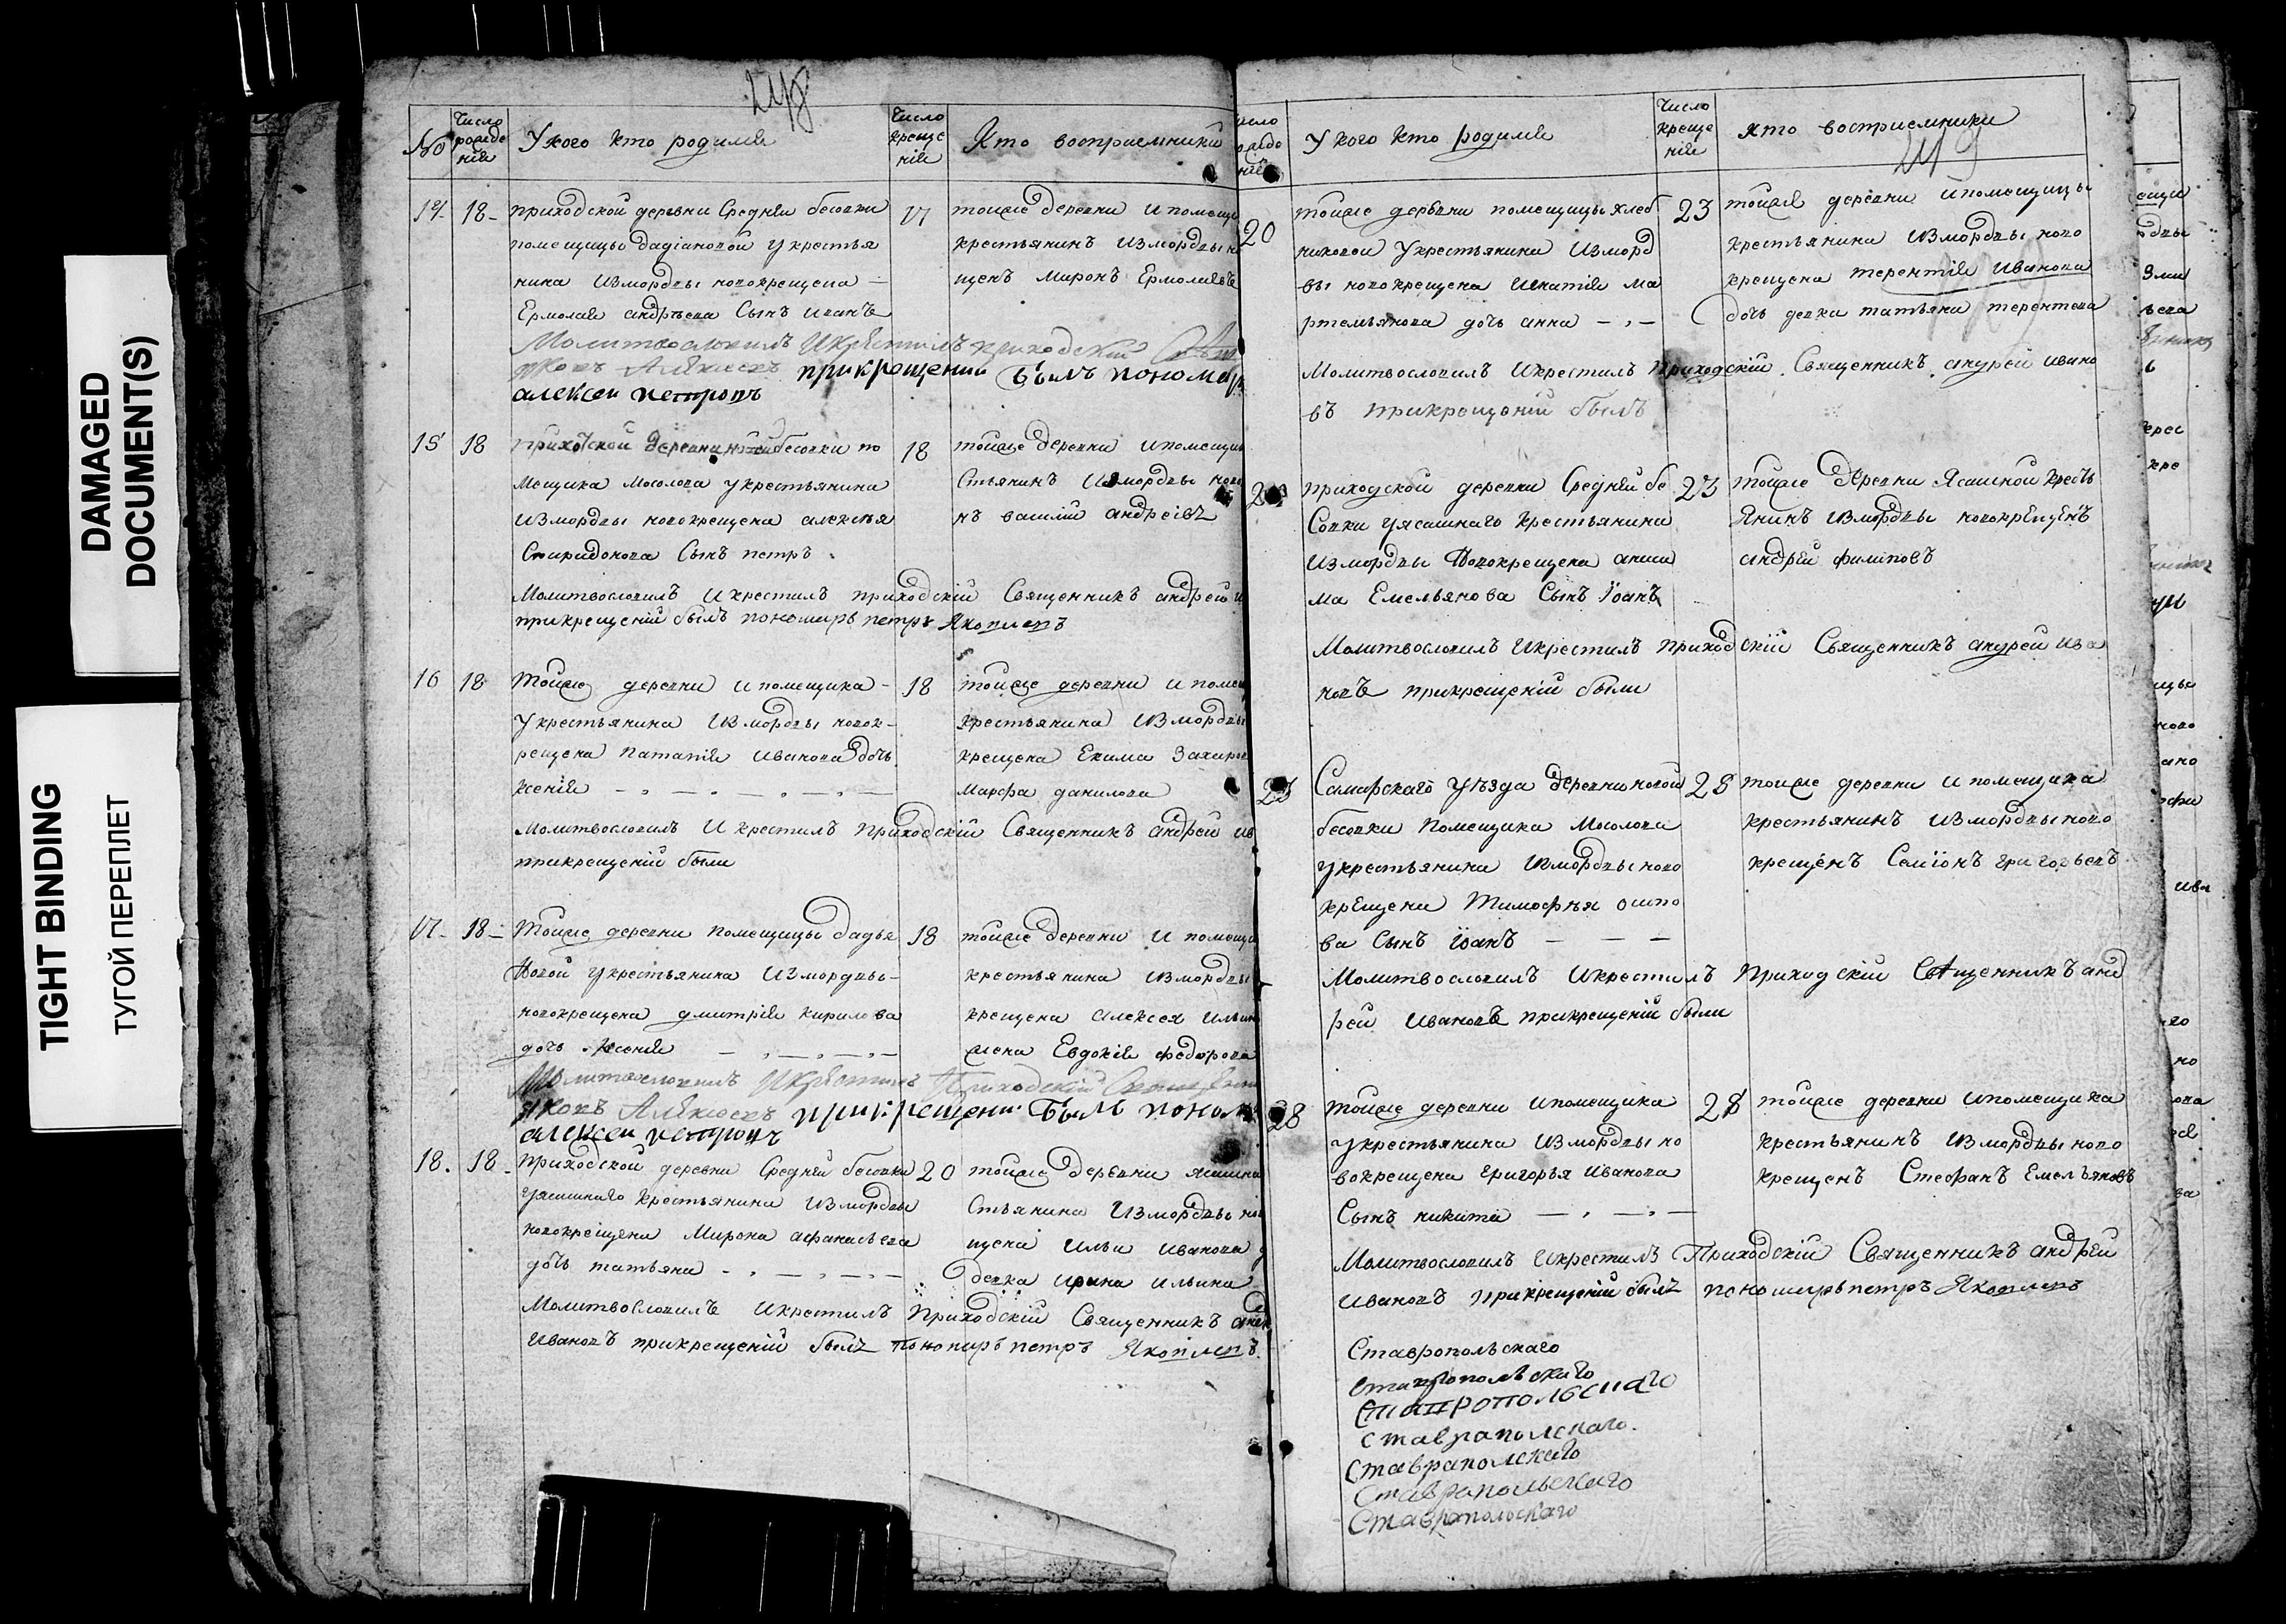 DAMAGED
DOCUMENT(S)
TIGHT BINDING
ТУГОЙ ПЕРЕПЛЕТ
248
No
Число рожде нія
У кого кто родился
Число креще нія
Кто восприемники
14 18 приходской деревни Средней бесовки
помещицы дадіановой у крестья
нина измордвы новокрещена
Ермолая андрѣева Сынъ иванъ
17 тойже деревни и помещи
крестьянинъ измордвы н
щенъ Миронъ Ермолаевъ
Молитвословилъ и крестилъ приходскій
яковъ Алексеевъ прикрещении былъ пономарь
алексеи петровъ
15 18 приходской деревни новой бесовки по
мещика Мосолова у крестьянина
измордвы новокрещена алексѣя
Спиридонова Сынъ петръ
18 тойже деревни и помещик
Стьянинъ измордвы ново
нъ василій андреівъ
Молитвословилъ и крестилъ приходскій Священникъ андрей и
прикрещеніи былъ пономарь петръ Яковлевъ
16 18 тойже деревни и помещика
у крестьянина измордвы новок
рещена Игнатія иванова дочь
ксенія
18 тойже деревни и помещ
крестьянина измордвы
крещена Екима Захаров
Марфа данилова
Молитвословилъ и крестилъ приходскій Священникъ андрей ив
прикрещеніи были
17 18 тойже деревни помещицы дадья
новой у крестьянина измордвы
новокрещена дмитрія кирилова
дочь Ксенія
18 тойже деревни и помещи
крестьянина измордвы
крещена алексея ильин
жена Евдокія федорова
Молитвословилъ и крестилъ Приходскій
яковъ Алексеевъ прикрещении былъ поном
алексеи петровъ
18. 18 приходской деревни Средней бесовки
у ясашнаго крестьянина измордвы
новокрещена Мирона афанасьева
дочь татьяна
20 тойже деревни ясашна
Стьянина измордвы нов
щена ильи иванова д
девка ирина ильина
Молитвословилъ и крестилъ Приходскій Священникъ андр
ивановъ прикрещеніи былъ пономарь петръ Яковлевъ
249
У кого кто родился
Число креще нія
Кто восприемники
20 тойже деревни помещицы хлеб
никовой у крестьянина измордв
вы новокрещена игнатія ма
ртемьянова дочь анна
23 тойже деревни и помещицы
крестьянина измордвы ново
крещена терентія иванова
дочь девка татьяна терентева
Молитвословилъ и крестилъ приходскій Священникъ андрей ивано
въ прикрещеніи былъ
приходской деревни Средней бе
Совки у ясашнаго крестьянина
измордвы Новокрещена аники
ма Емельянова Сынъ іоанъ
23 тойже деревни Ясашной кресть
Янинъ измордвы новокрещенъ
андрей филиповъ
Молитвословилъ и крестилъ приходскій Священникъ андрей ива
новъ прикрещеніи были
Самарскаго уѣзда деревни новой
бесовки Помещика Мосолова
у крестьянина измордвы ново
крещена Тимофѣя осипо
ва Сынъ іоанъ
28 тойже деревни и помещика
крестьянинъ измордвы ново
крещенъ Семіонъ григорьевъ
Молитвословилъ и крестилъ Приходскій Священникъ анд
рей ивановъ прикрещеніи были
28 тойже деревни и помещика
у крестьянина измордвы но
вокрещена григорья иванова
Сынъ никита
28 тойже деревни и помещика
крестьянинъ измордвы ново
крещенъ Стефанъ Емельяновъ
Молитвословилъ и крестилъ Приходскій Священникъ андрей
ивановъ прикрещеніи былъ пономарь петръ Яковлевъ
Ставропольскаго
Ставропольскаго
Ставропольскаго
Ставраполскаго.
Ставраполскаго
Ставрапольскаго
Ставрапольскаго